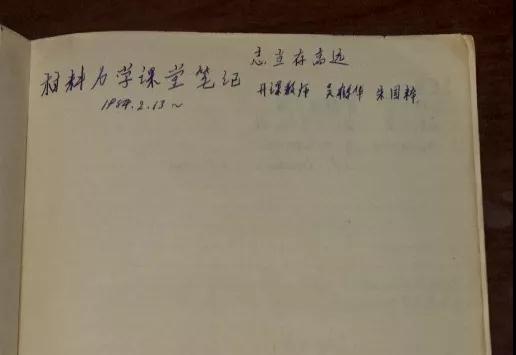 志当存高远
材料力学课堂笔记
开课教师 吴 华 宋国梓
1989.2.13~